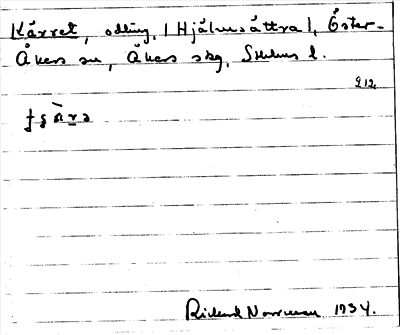 Kärret, odling, (Hjälmsättra), Öster-
Åkers sn, Åkers skg, Sthlms l.
212
Rickard Norrman 1934.